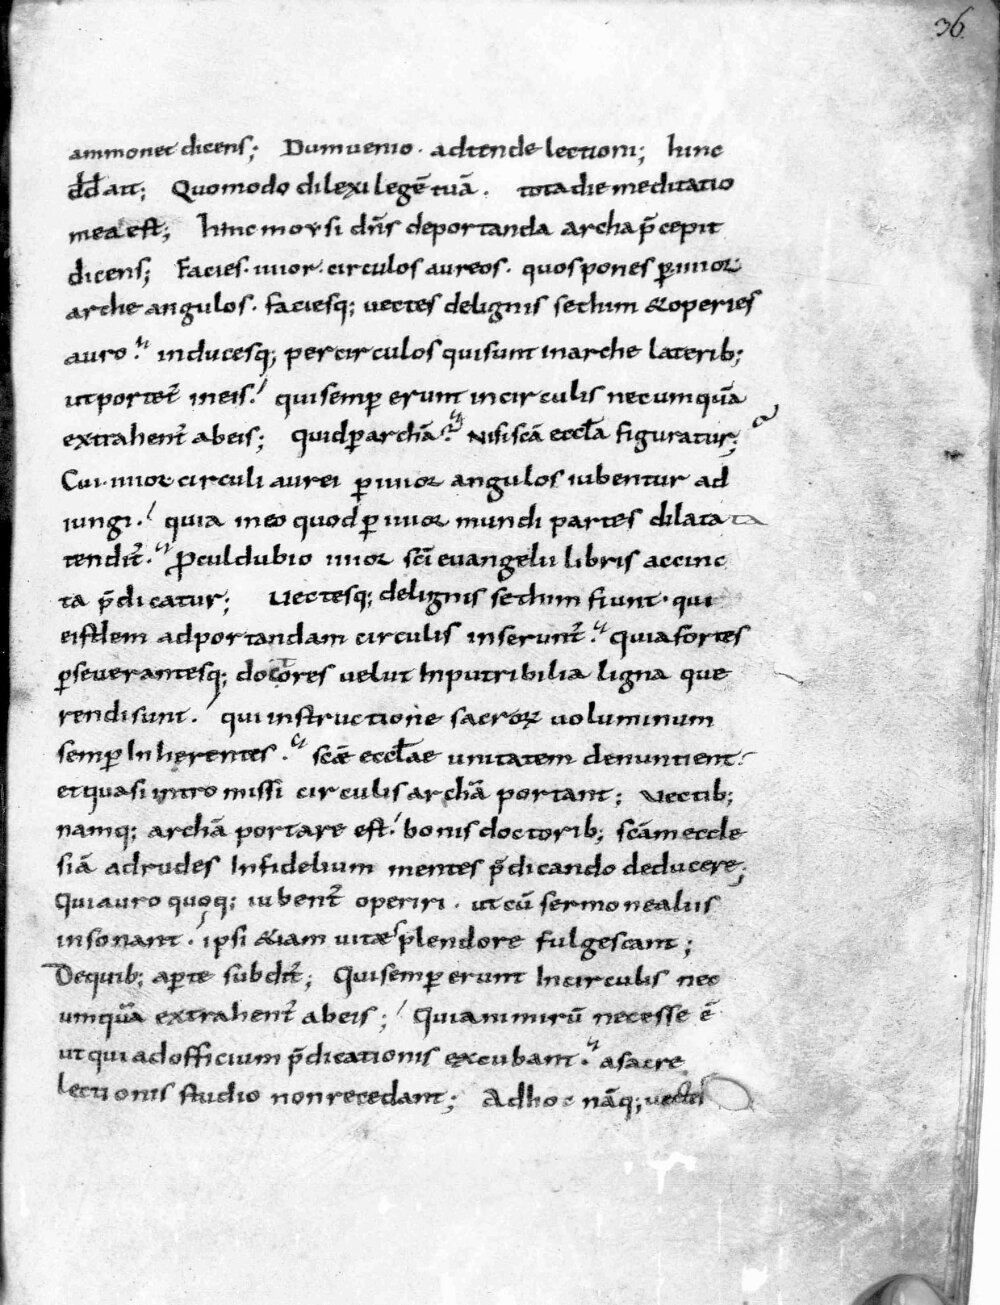 36.
ammonet dicens; Dum uenio. adtende lectioni; hinc
dd̄ ait; Quomodo dilexi legē tuā. tota die meditatio
mea est; hinc moysi dn̄s deportanda archa p̄cepit
dicens; Facies. iiiior. circulos aureos. quos pones ꝑ iiiior
arche angulos. faciesq; uectes de lignis sethim & operies
auro. inducesq; per circulos qui sunt in arche laterib;
ut portet̄ in eis. qui semꝑ erunt in circulis nec umquā
extrahent̄ ab eis; quid ꝑ archā. Nisi scā eccl̄a figuratur;
Cui. iiiior circuli aurei ꝑ iiiior angulos iubentur ad
iungi. quia in eo quod ꝑ iiiior mundi partes dilatata
tendit̄. ꝓculdubio iiiior scī euangelii libris accinc
ta p̄dicatur; Uectesq; de lignis sethim fiunt. qui
eisdem ad portandam circulis inserunt̄. quia fortes
ꝑseuerantesq; doctores uelut Inputribilia ligna que
rendi sunt. qui instructione sacroꝝ uoluminum
semꝑ Inherentes. scǣ eccl̄ae unitatem denuntient.
et quasi intromissi circulis archā portant; Uectib;
namq; archā portare est. bonis doctorib; scām eccle
siā ad rudes Infidelium mentes p̄dicando deducere;
Qui auro quoq; iubent̄ operiri. ut cū sermone aliis
insonant. ipsi &iam uitæ splendore fulgescant;
De quib; aꝑte subdit̄; Qui semꝑ erunt In circulis nec
umquā extrahent̄ ab eis; Quia nimirū necesse ē
ut qui ad officium p̄dicationis excubant. a sacre
lectionis studio non recedant; Ad hoc nāq; uectes